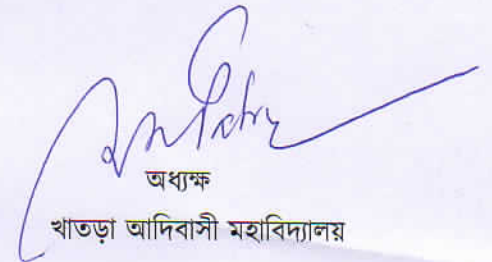 অধ্যক্ষ
খাতড়া আদিবাসী মহাবিদ্যালয়